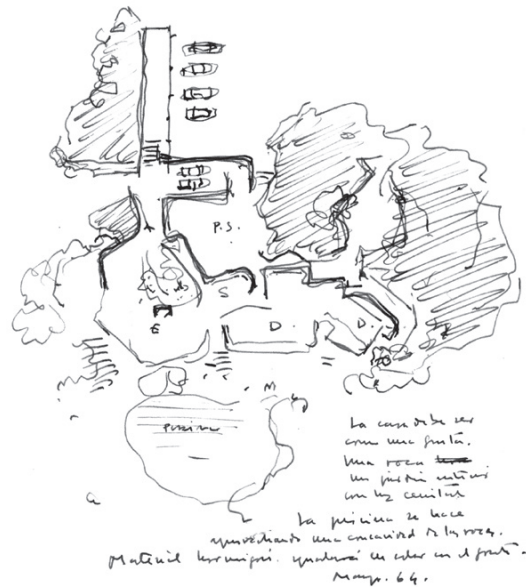 P.S.
S
E
D.
D.
piscina
La casa debe ser
como una gruta.
Una roca
un jardín interior
con luz cenital
La piscina se hace
aprovechando una concavidad de las rocas.
Material hormigón. en color
Mayo. 64.